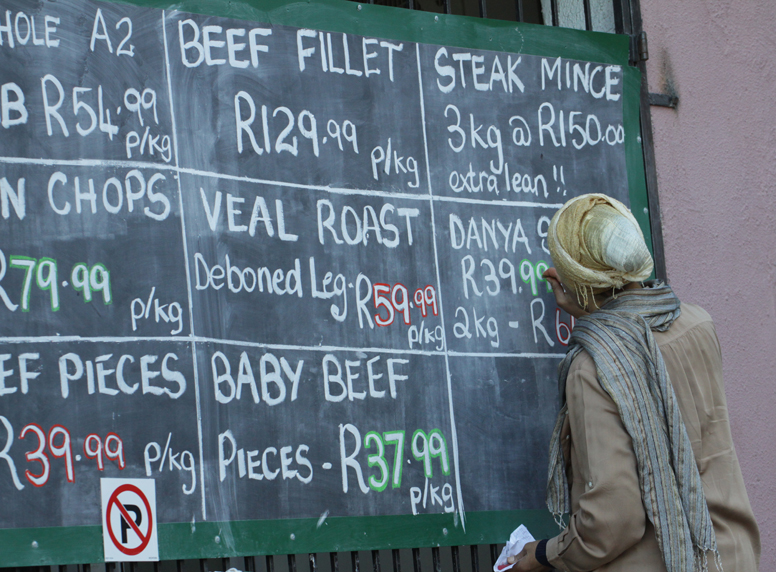 HOLE A2
B R54.99
p/kg
BEEF FILLET
R129.99
p/kg
STEAK MINCE
3kg @ R150.00
extra lean!!
N CHOPS
R79.99
p/kg
VEAL ROAST
Deboned Leg - R59.99
p/kg
DANYA S
R39.99
2kg - R6
EF PIECES
R39.99 p/kg
BABY BEEF
PIECES - R37.99
p/kg
P